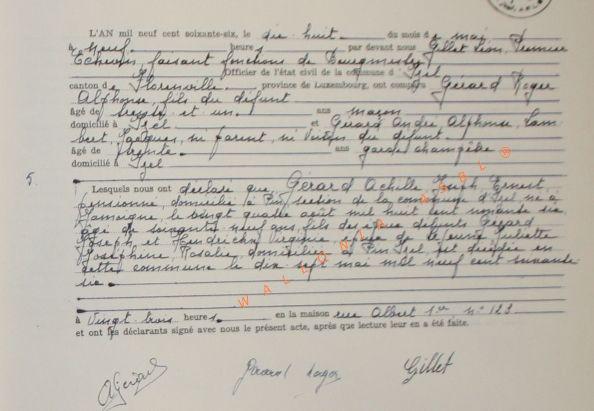 L'AN mil neuf cent soixante-six, le dix huit du mois de mai
à neuf heures, par devant nous Gillet Léon, Premier
Echevin, faisant fonctions de Bourgmestre
Officier de l'état civil de la commune d'Izel
canton de Florenville, province de Luxembourg, ont comparu Gérard Roger
Alphonse, fils du défunt
âgé de trente et un ans maçon
domicilié à Izel et Gérard André Alphonse, Lam
bert, Jacques, ni parent, ni voisin du défunt.
âgé de trente ans garde champêtre
domicilié à Izel
5.
Lesquels nous ont déclaré que, Gérard Achille, Joseph Ernest,
pensionné, domicilié à Pin section de la commune d'Izel né à
Jamoigne le vingt quatre août mil huit cent nonante six
âgé de soixante neuf ans, fils des époux défunts Gérard
Joseph, et Hendrickx Virginie, de Juliette
Joséphine, Rosalie, domiciliée à Pin Izel, est décédé en
cette commune le dix sept mai mil neuf cent soixante
six
à vingt trois heures, en la maison rue Albert 1er, n° 123
et ont les déclarants signé avec nous le présent acte, après que lecture leur en a été faite.
WALLONIA AGBL ®
Gérard Gérard Roger Gillet